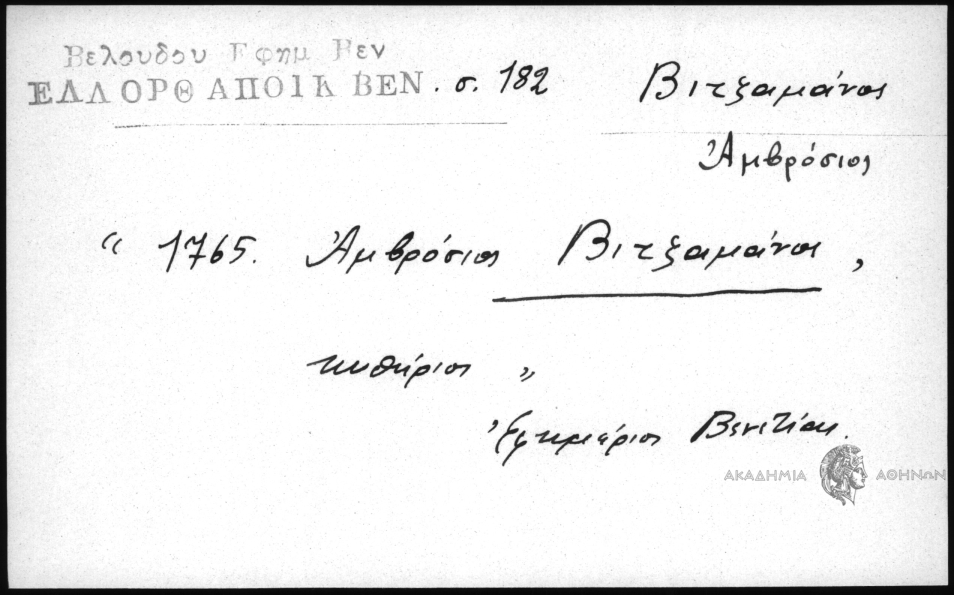 Βελουδου Εφημ Βεν
ΕΛΛ ΟΡΘ ΑΠΟΙΚ ΒΕΝ. σ. 182
Βιτζαμάνος
Ἀμβρόσιος
“ 1765. Ἀμβρόσιος Βιτζαμάνος,
κυθήριος ”
Ἐφημέριος Βενετίας.
ΑΚΑΔΗΜΙΑ ΑΘΗΝΩΝ